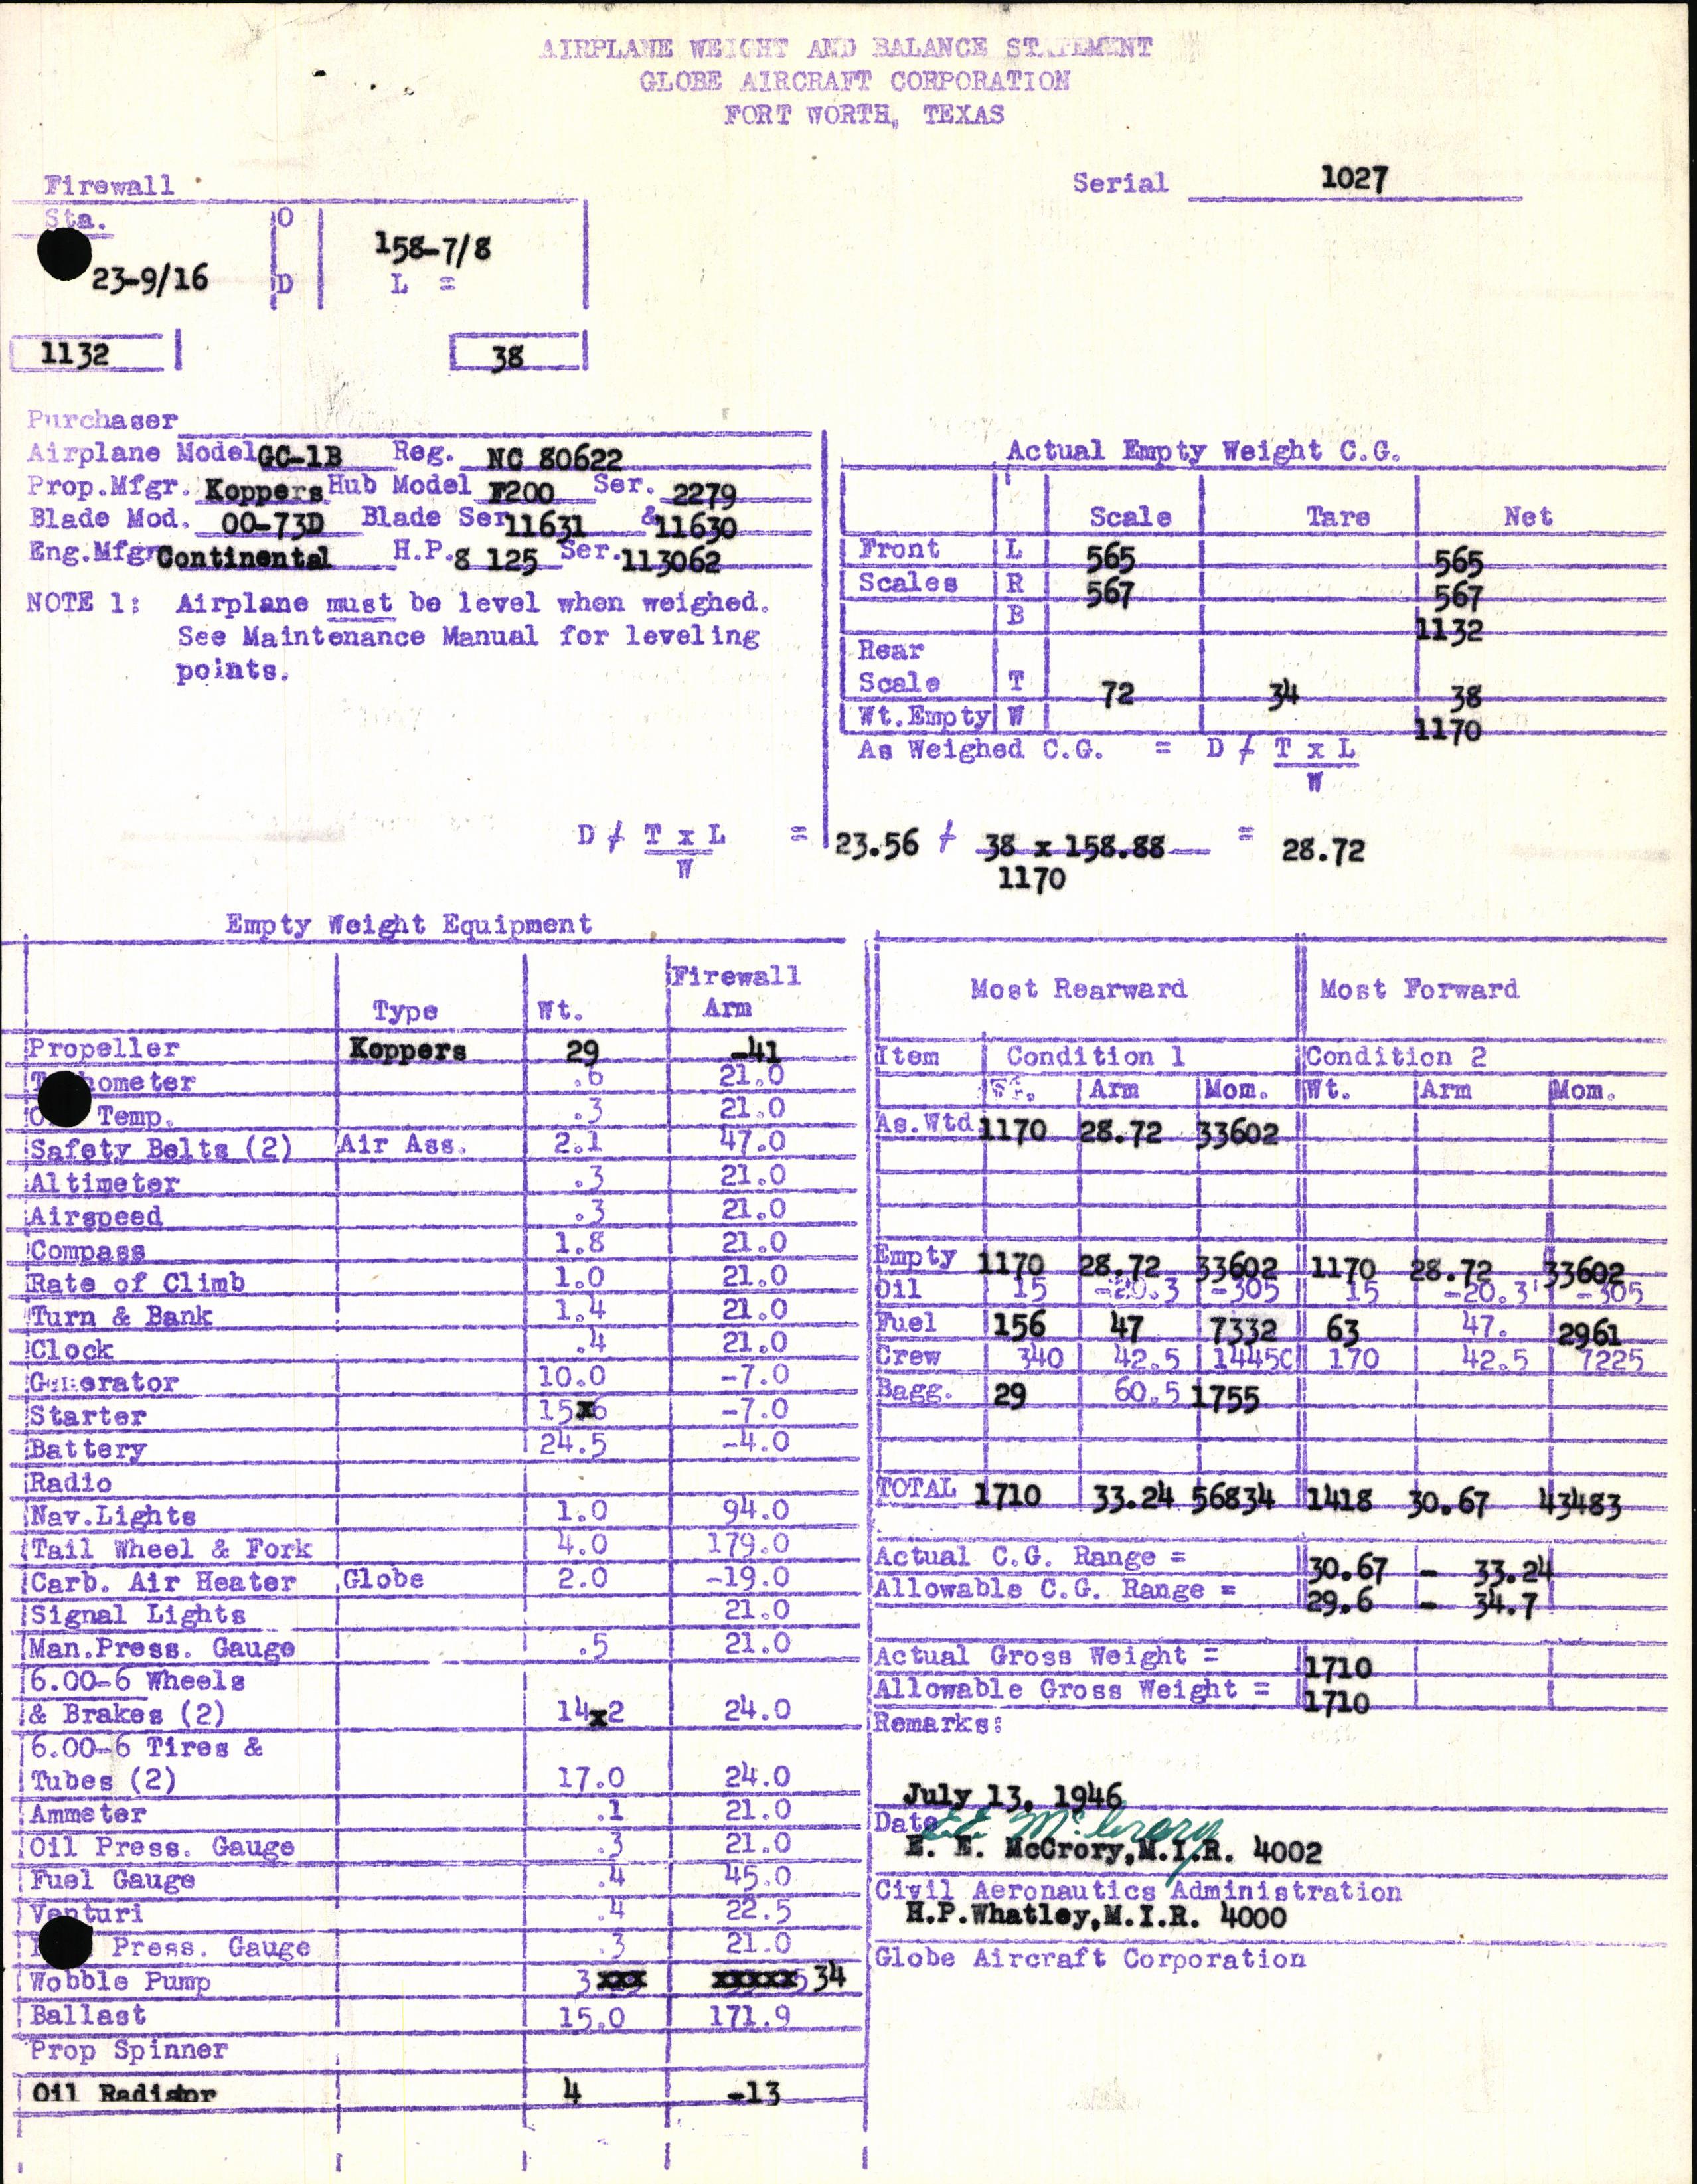 AIRPLANE WEIGHT AND BALANCE STATEMENT
GLOBE AIRCRAFT CORPORATION
FORT WORTH, TEXAS
Serial 1027
Firewall
Sta. O
158-7/8
23-9/16 D L =
1132 38
Purchaser
Airplane Model GC-1B Reg. NC 80622
Prop.Mfgr. Koppers Hub Model F200 Ser. 2279
Blade Mod. 00-73D Blade Ser 11631 & 11630
Eng.Mfgr Continental H.P.s 125 Ser. 113062
NOTE 1: Airplane must be level when weighed.
See Maintenance Manual for leveling
points.
Actual Empty Weight C.G.
Scale Tare Net
Front L 565 565
Scales R 567 567
B 1132
Rear
Scale T 72 34 38
Wt.Empty W 1170
As Weighed C.G. = D ≠ T x L
W
D ≠ T x L = 23.56 ≠ 38 x 158.88 = 28.72
W 1170
Empty Weight Equipment
Type Wt. Firewall Arm
Propeller Koppers 29 -41
.6 21.0
Temp. .3 21.0
Safety Belts (2) Air Ass. 2.1 47.0
Altimeter .3 21.0
Airspeed .3 21.0
Compass 1.8 21.0
Rate of Climb 1.0 21.0
Turn & Bank 1.4 21.0
Clock .4 21.0
Generator 10.0 -7.0
Starter 15x6 -7.0
Battery 24.5 -4.0
Radio
Nav.Lights 1.0 94.0
Tail Wheel & Fork 4.0 179.0
Carb. Air Heater Globe 2.0 -19.0
Signal Lights 21.0
Man.Press. Gauge .5 21.0
6.00-6 Wheels
& Brakes (2) 14x2 24.0
6.00-6 Tires &
Tubes (2) 17.0 24.0
Ammeter .1 21.0
Oil Press. Gauge .3 21.0
Fuel Gauge .4 45.0
Venturi .4 22.5
Press. Gauge .3 21.0
Wobble Pump 3xxx xxxxx5 34
Ballast 15.0 171.9
Prop Spinner
Oil Radiator 4 -13
Most Rearward Most Forward
Item Condition 1 Condition 2
Wt. Arm Mom. Wt. Arm Mom.
As.Wtd 1170 28.72 33602
Empty 1170 28.72 33602 1170 28.72 33602
Oil 15 -20.3 -305 15 -20.3 -305
Fuel 156 47 7332 63 47. 2961
Crew 340 42.5 14450 170 42.5 7225
Bagg. 29 60.5 1755
TOTAL 1710 33.24 56834 1418 30.67 43483
Actual C.G. Range = 30.67 - 33.24
Allowable C.G. Range = 29.6 - 34.7
Actual Gross Weight = 1710
Allowable Gross Weight = 1710
Remarks:
July 13, 1946
Date
E E McCrory
E. E. McCrory,M.I.R. 4002
Civil Aeronautics Administration
H.P.Whatley,M.I.R. 4000
Globe Aircraft Corporation